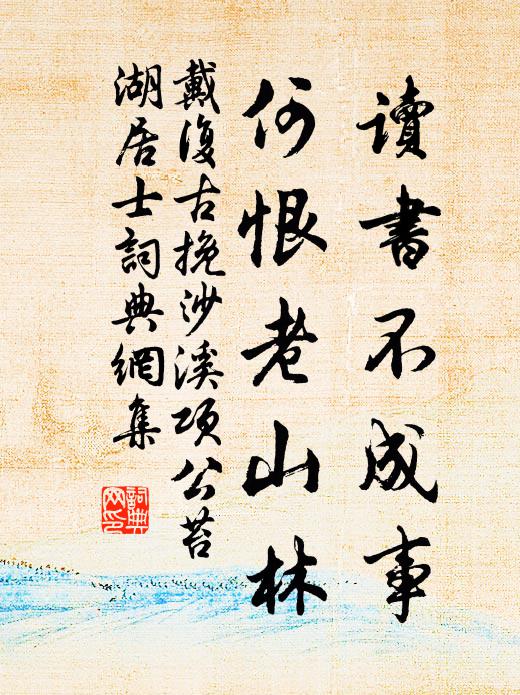 讀書不成事
何恨老山林
戴復古挽沙溪項公苔
湖居士詞典網集
詞典
網印